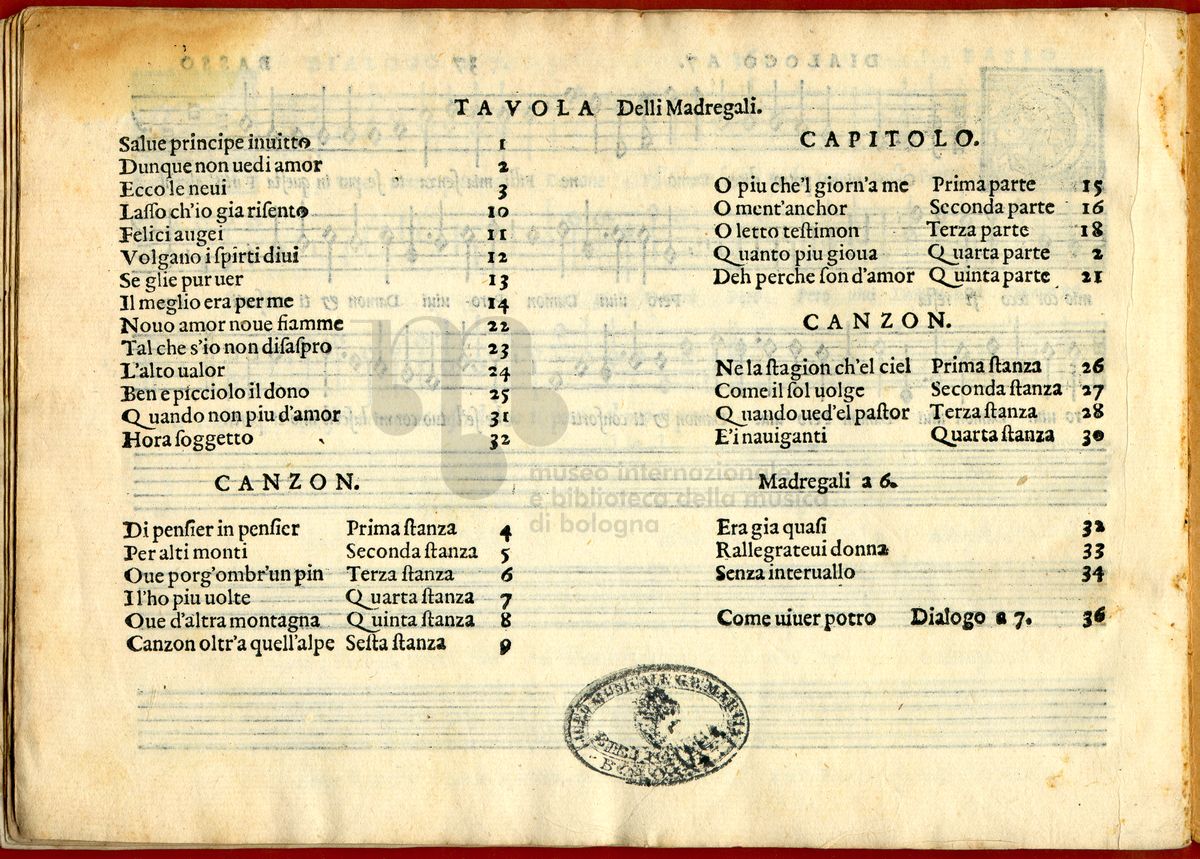 TAVOLA Delli Madregali.
Salue principe inuitto 1
Dunque non uedi amor 2
Ecco le neui 3
Lasso ch'io gia risento 10
Felici augei 11
Volgano i ſpirti diui 12
Se glie pur uer 13
Il meglio era per me 14
Nouo amor noue fiamme 22
Tal che s'io non diſaſpro 23
L'alto ualor 24
Ben e picciolo il dono 25
Quando non piu d'amor 31
Hora ſoggetto 32
CANZON.
Di penſier in penſier Prima ſtanza 4
Per alti monti Seconda ſtanza 5
Oue porg'ombr'un pin Terza ſtanza 6
I l'ho piu uolte Quarta ſtanza 7
Oue d'altra montagna Quinta ſtanza 8
Canzon oltr'a quell'alpe Seſta ſtanza 9
CAPITOLO.
O piu che'l giorn'a me Prima parte 15
O ment'anchor Seconda parte 16
O letto teſtimon Terza parte 18
Quanto piu gioua Quarta parte 2
Deh perche ſon d'amor Quinta parte 21
CANZON.
Ne la ſtagion ch'el ciel Prima ſtanza 26
Come il ſol uolge Seconda ſtanza 27
Quando ued'el paſtor Terza ſtanza 28
E'i nauiganti Quarta ſtanza 30
Madregali a 6.
Era gia quaſi 32
Rallegrateui donna 33
Senza interuallo 34
Come uiuer potro Dialogo a 7. 36
museo internazionale
e biblioteca della musica
di bologna